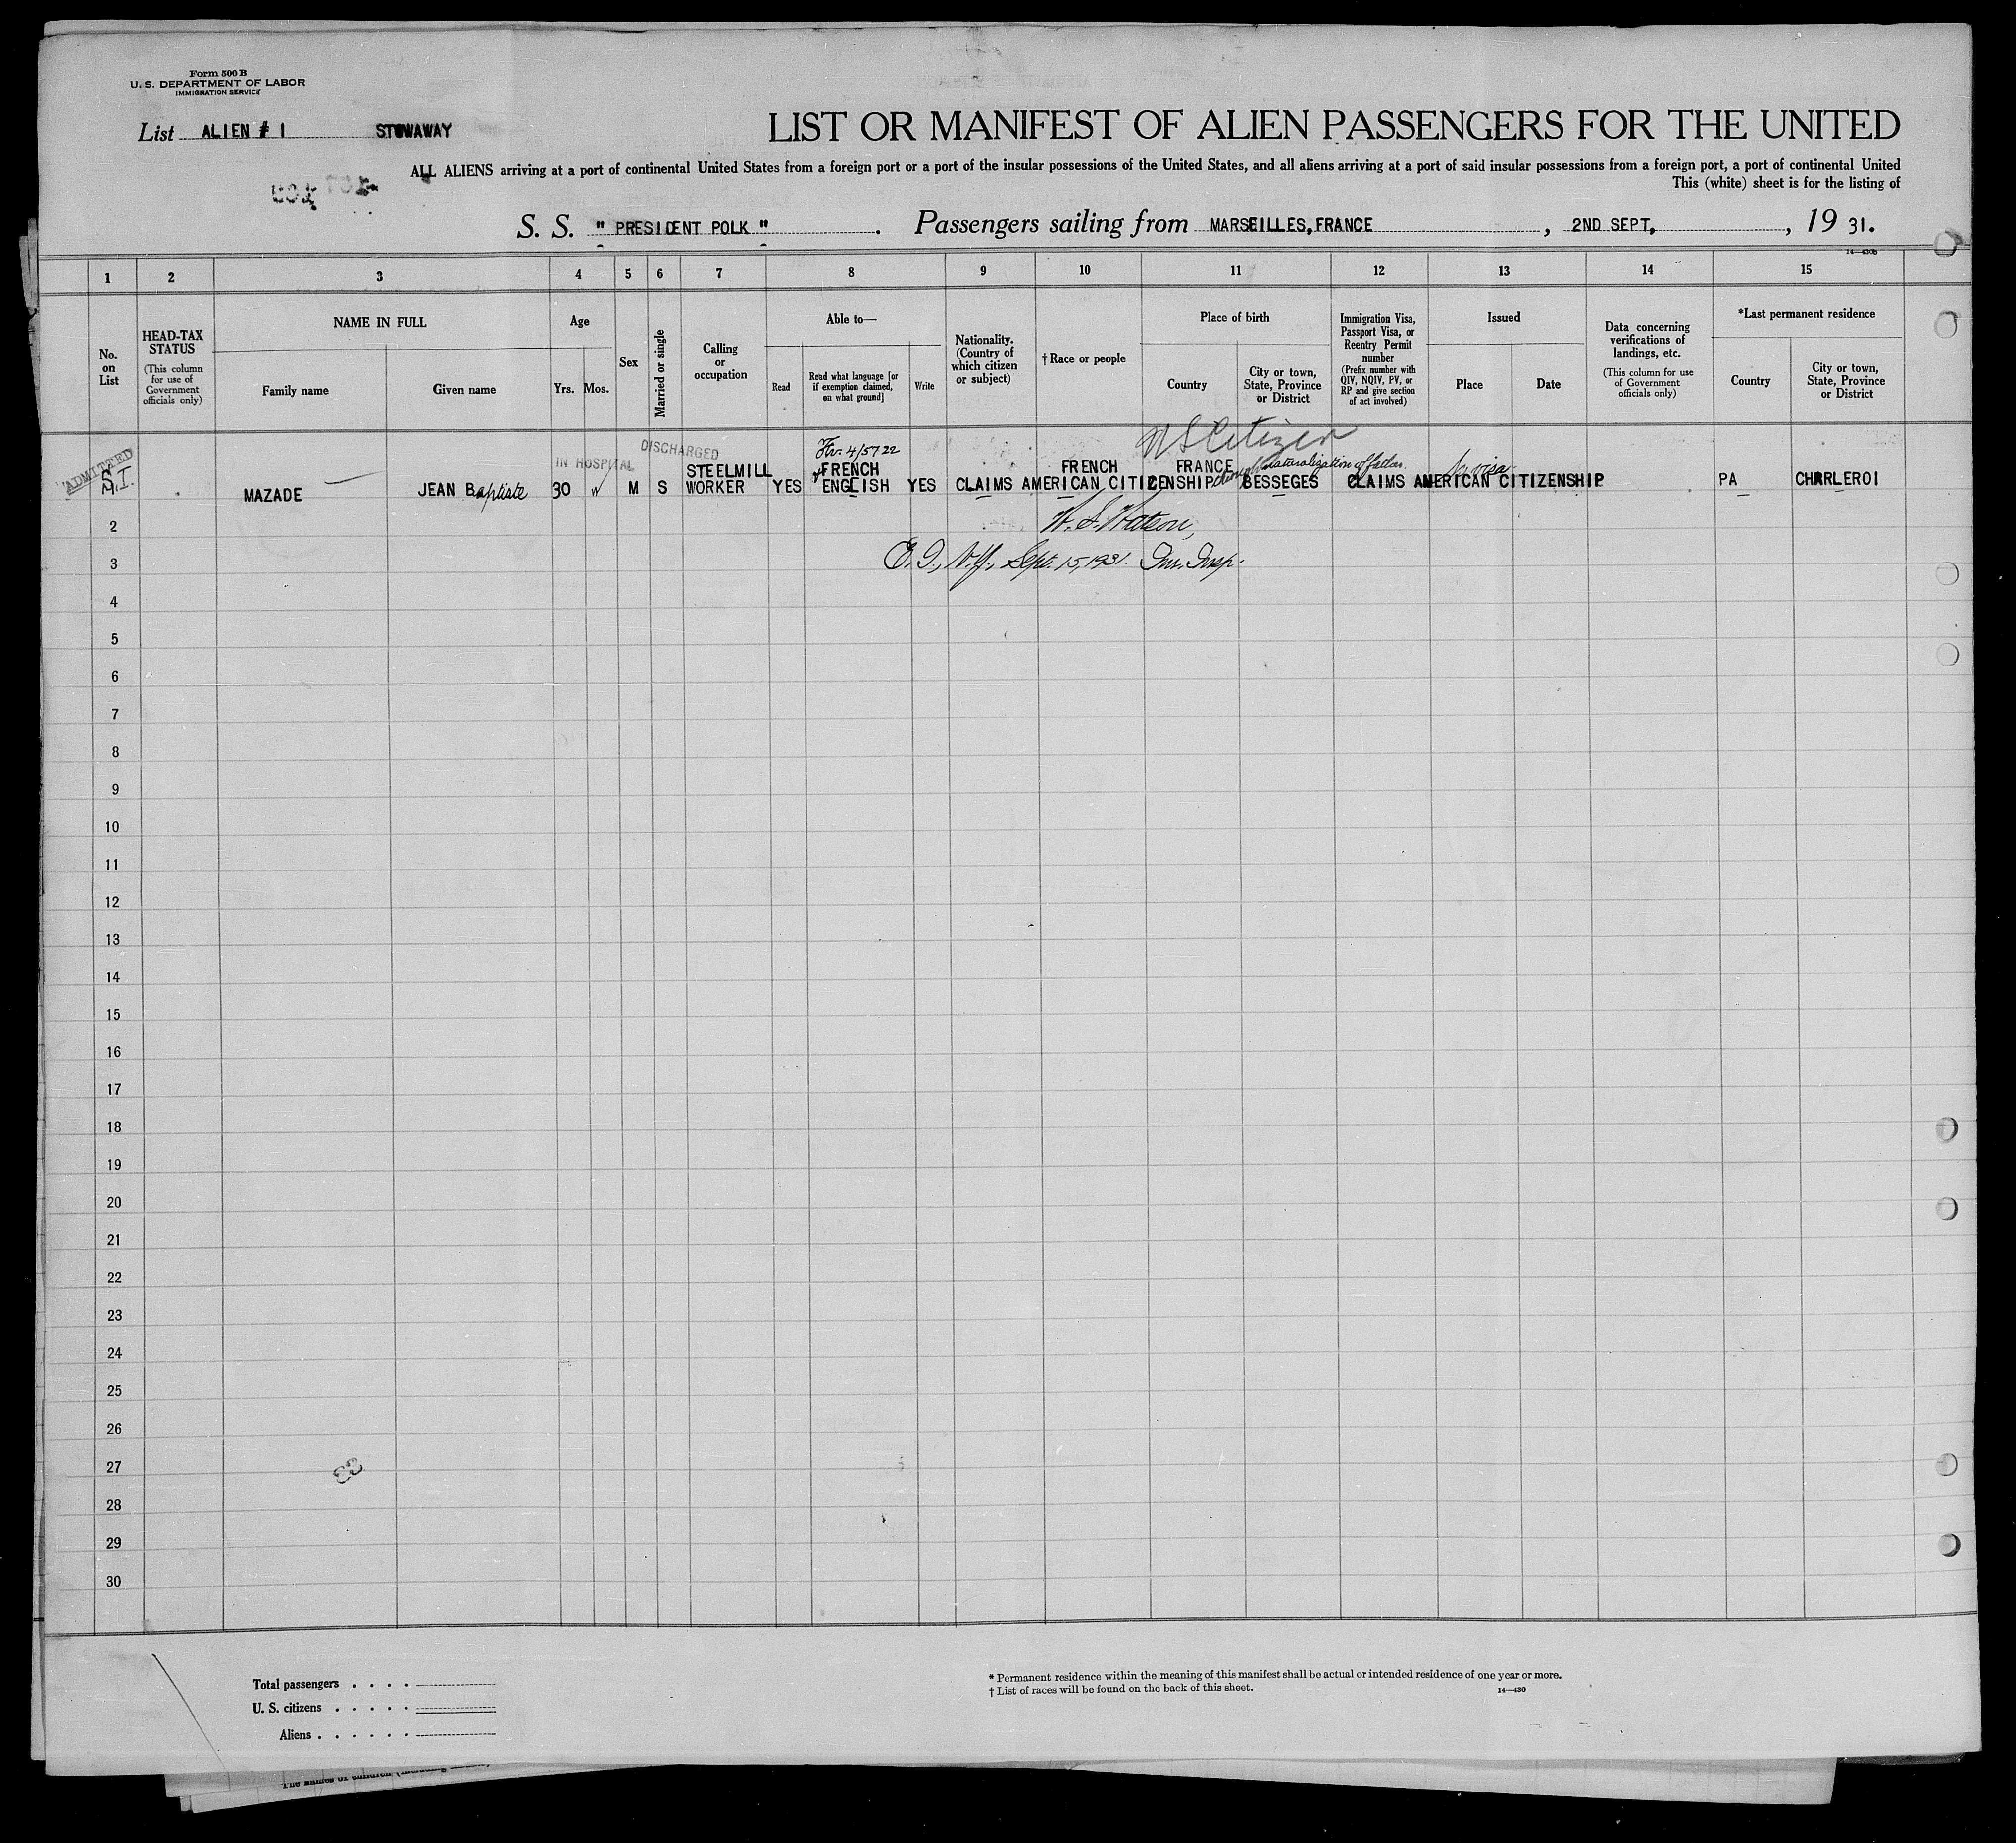 Form 500 B
U. S. DEPARTMENT OF LABOR
IMMIGRATION SERVICE
List ALIEN # 1 STOWAWAY
LIST OR MANIFEST OF ALIEN PASSENGERS FOR THE UNITED
ALL ALIENS arriving at a port of continental United States from a foreign port or a port of the insular possessions of the United States, and all aliens arriving at a port of said insular possessions from a foreign port, a port of continental United
This (white) sheet is for the listing of
S. S. " PRESIDENT POLK " . Passengers sailing from MARSEILLES, FRANCE , 2ND SEPT, , 19 31.
14—430b
1 2 3 4 5 6 7 8 9 10 11 12 13 14 15
No. on List
HEAD-TAX STATUS (This column for use of Government officials only)
NAME IN FULL
Family name
Given name
Age
Yrs. Mos.
Sex
Married or single
Calling or occupation
Able to—
Read
Read what language [or if exemption claimed, on what ground]
Write
Nationality. (Country of which citizen or subject)
† Race or people
Place of birth
Country
City or town, State, Province or District
Immigration Visa, Passport Visa, or Reentry Permit number (Prefix number with QIV, NQIV, PV, or RP and give section of act involved)
Issued
Place
Date
Data concerning verifications of landings, etc. (This column for use of Government officials only)
*Last permanent residence
Country
City or town, State, Province or District
U S Citizen
ADMITTED
S.I.
IN HOSPITAL
DISCHARGED
4/5722
through naturalization of father
No visa
MAZADE JEAN Baptiste 30 M S STEELMILL WORKER YES FRENCH ENGLISH YES CLAIMS AMERICAN CITIZENSHIP FRENCH FRANCE BESSEGES CLAIMS AMERICAN CITIZENSHIP PA CHARLEROI
2 W. S. Watson,
3 E. I., N.Y., Sept. 15, 1931. Imm. Insp.
4
5
6
7
8
9
10
11
12
13
14
15
16
17
18
19
20
21
22
23
24
25
26
27
28
29
30
Total passengers . . . .
U. S. citizens . . . . .
Aliens . . . . . .
* Permanent residence within the meaning of this manifest shall be actual or intended residence of one year or more.
† List of races will be found on the back of this sheet.
14—430